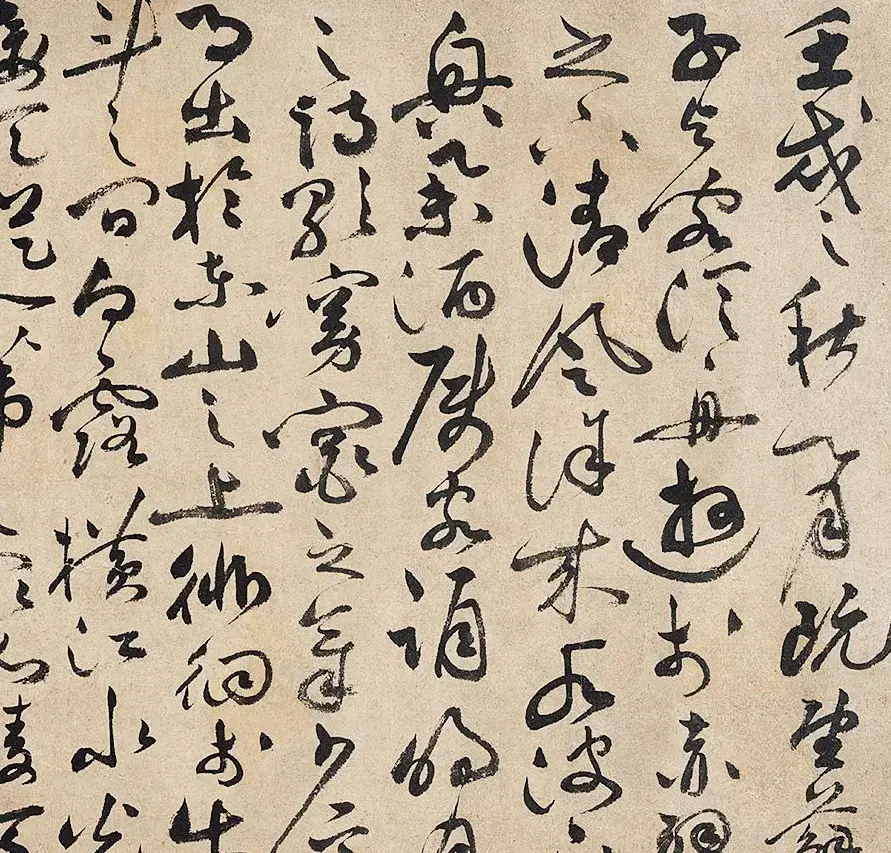 壬戌之秋七月既望蘇
子與客泛舟遊於赤壁
之下清風徐來水波
興舉酒屬客誦明月
之詩歌窈窕之章少
月出於東山之上徘徊於牛
斗之間白露橫江水光